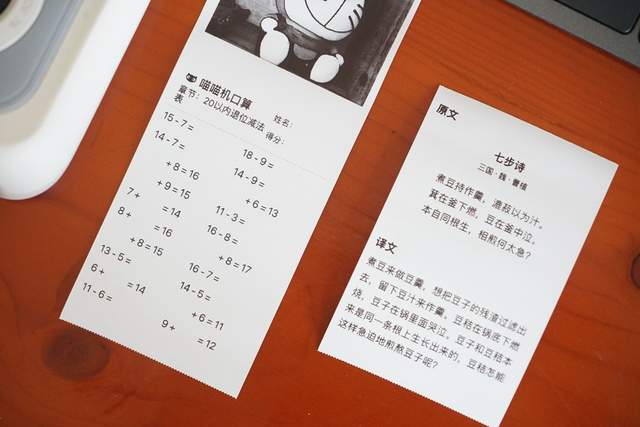 喵喵机口算
章节：20以内退位减法 姓名：
表 得分：
15-7=
14-7=
+8=16
+9=15
7+ =14
8+ =16
+8=15
13-5=
6+ =14
11-6=
18-9=
14-9=
+6=13
11-3=
16-8=
+8=17
16-7=
14-5=
+6=11
9+ =12
原文
七步诗
三国·魏·曹植
煮豆持作羹，漉菽以为汁。
萁在釜下燃，豆在釜中泣。
本自同根生，相煎何太急？
译文
煮豆来做豆羹，想把豆子的残渣过滤出
去，留下豆汁来作羹。豆秸在锅底下燃
烧，豆子在锅里面哭泣。豆子和豆秸本
来是同一条根上生长出来的，豆秸怎能
这样急迫地煎熬豆子呢？